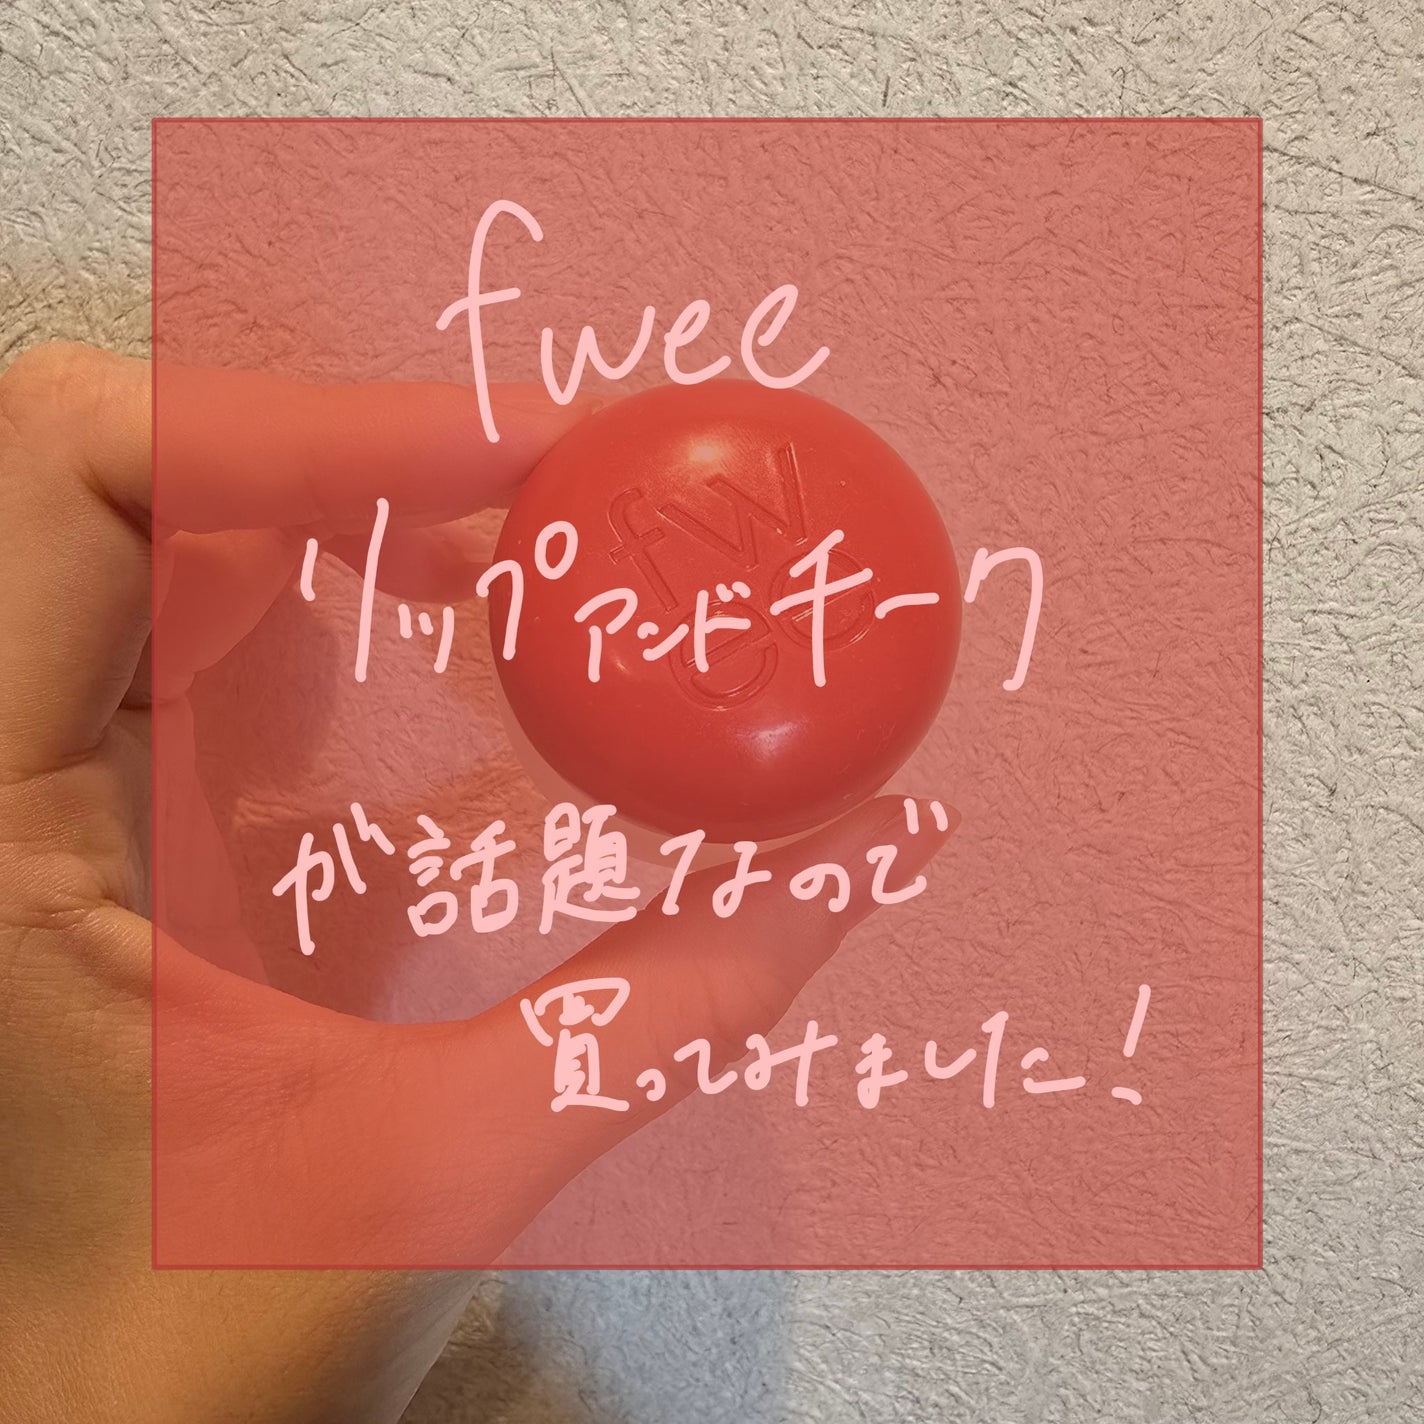 fwee
リップアンドチーク
が話題なので
買ってみました!
fw
ee